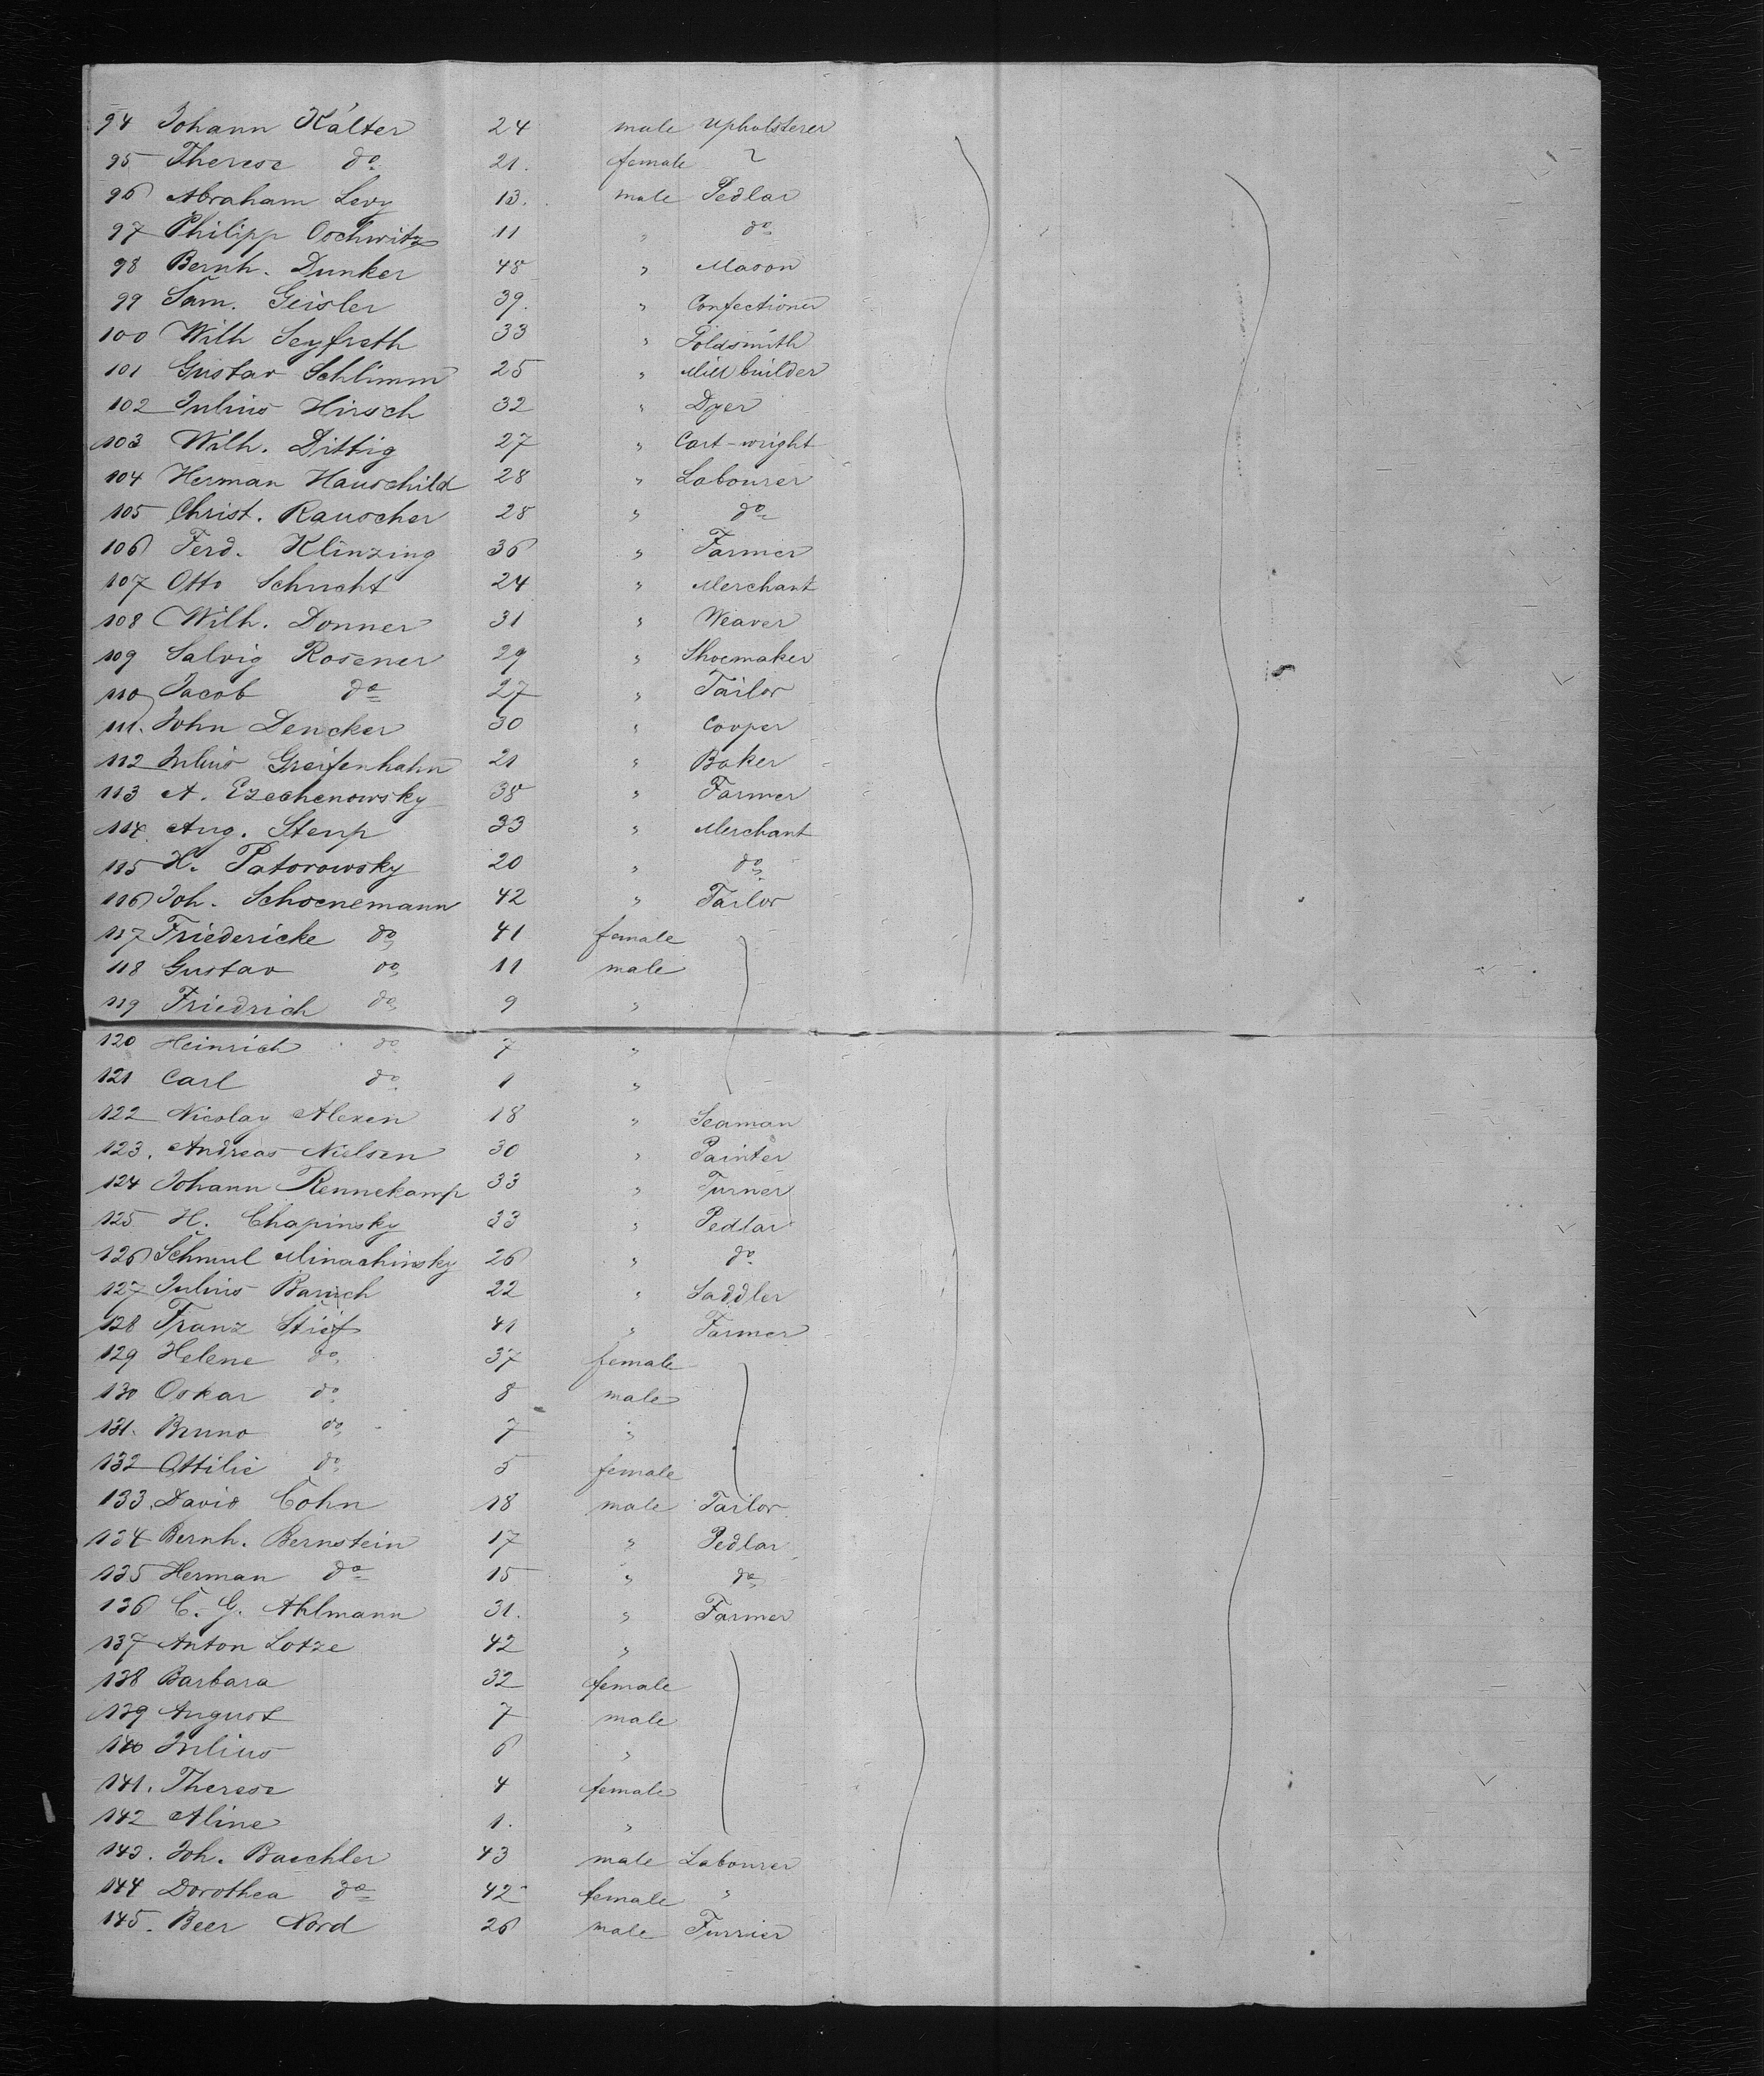 94 Johann Kälter 24 male Upholsterer
95 Therese do. 21. female
96 Abraham Levy 13. male Pedlar
97 Philipp Oschwitz 11 " do
98 Bernh. Dunker 48 " Mason
99 Sam. Geisler 39. " Confectioner
100 Wilh Seyfreth 33 " Goldsmith
101 Gustav Schlimm 25 " Mill builder
102 Julius Hirsch 32 " Dyer
103 Wilh. Dittig 27 " Cart-wright
104 Herman Hauschild 28 " Labourer
105 Christ. Rauscher 28 " do
106 Ferd. Klinzing 36 " Farmer
107 Otto Schucht 24 " Merchant
108 Wilh. Donner 31 " Weaver
109 Salvig Rosener 29 " Shoemaker
110 Jacob do 27 " Tailor
111. John Dencker 30 " Cooper
112 Julius Greifenhahn 21 " Baker
113 A. Ezechenowsky 38 " Farmer
114. Aug. Stenp 33 " Merchant
115 H. Patorowsky 20 " do
116 Joh. Schoenemann 42 " Tailor
117 Friedericke do 41 female
118 Gustav do 11 male
119 Friedrich do 9 "
120 Heinrich do 7 "
121 Carl do. 1 "
122 Nicolay Alexen 18 " Seaman
123. Andreas Nielsen 30 " Painter
124 Johann Rennekamp 33 " Turner
125 H. Chapinsky 33 " Pedlar
126 Schmul Minachinsky 26 " do.
127 Julius Baruch 22 " Saddler
128 Franz Stief 41 " Farmer
129 Helene do 37 female
130 Oskar do 8 male
131. Bruno do 7 "
132 Ottilie do 5 female
133. David Cohn 18 male Tailor
134 Bernh. Bernstein 17 " Pedlar
135 Herman do 15 " do
136 C. G. Ahlmann 31. " Farmer
137 Anton Lotze 42 "
138 Barbara 32 female
139 August 7 male
140 Julius 6 "
141. Therese 4 female
142 Aline 1. "
143. Joh. Baechler 43 male Labourer
144 Dorothea do 42 female "
145. Beer Nord 26 male Furrier